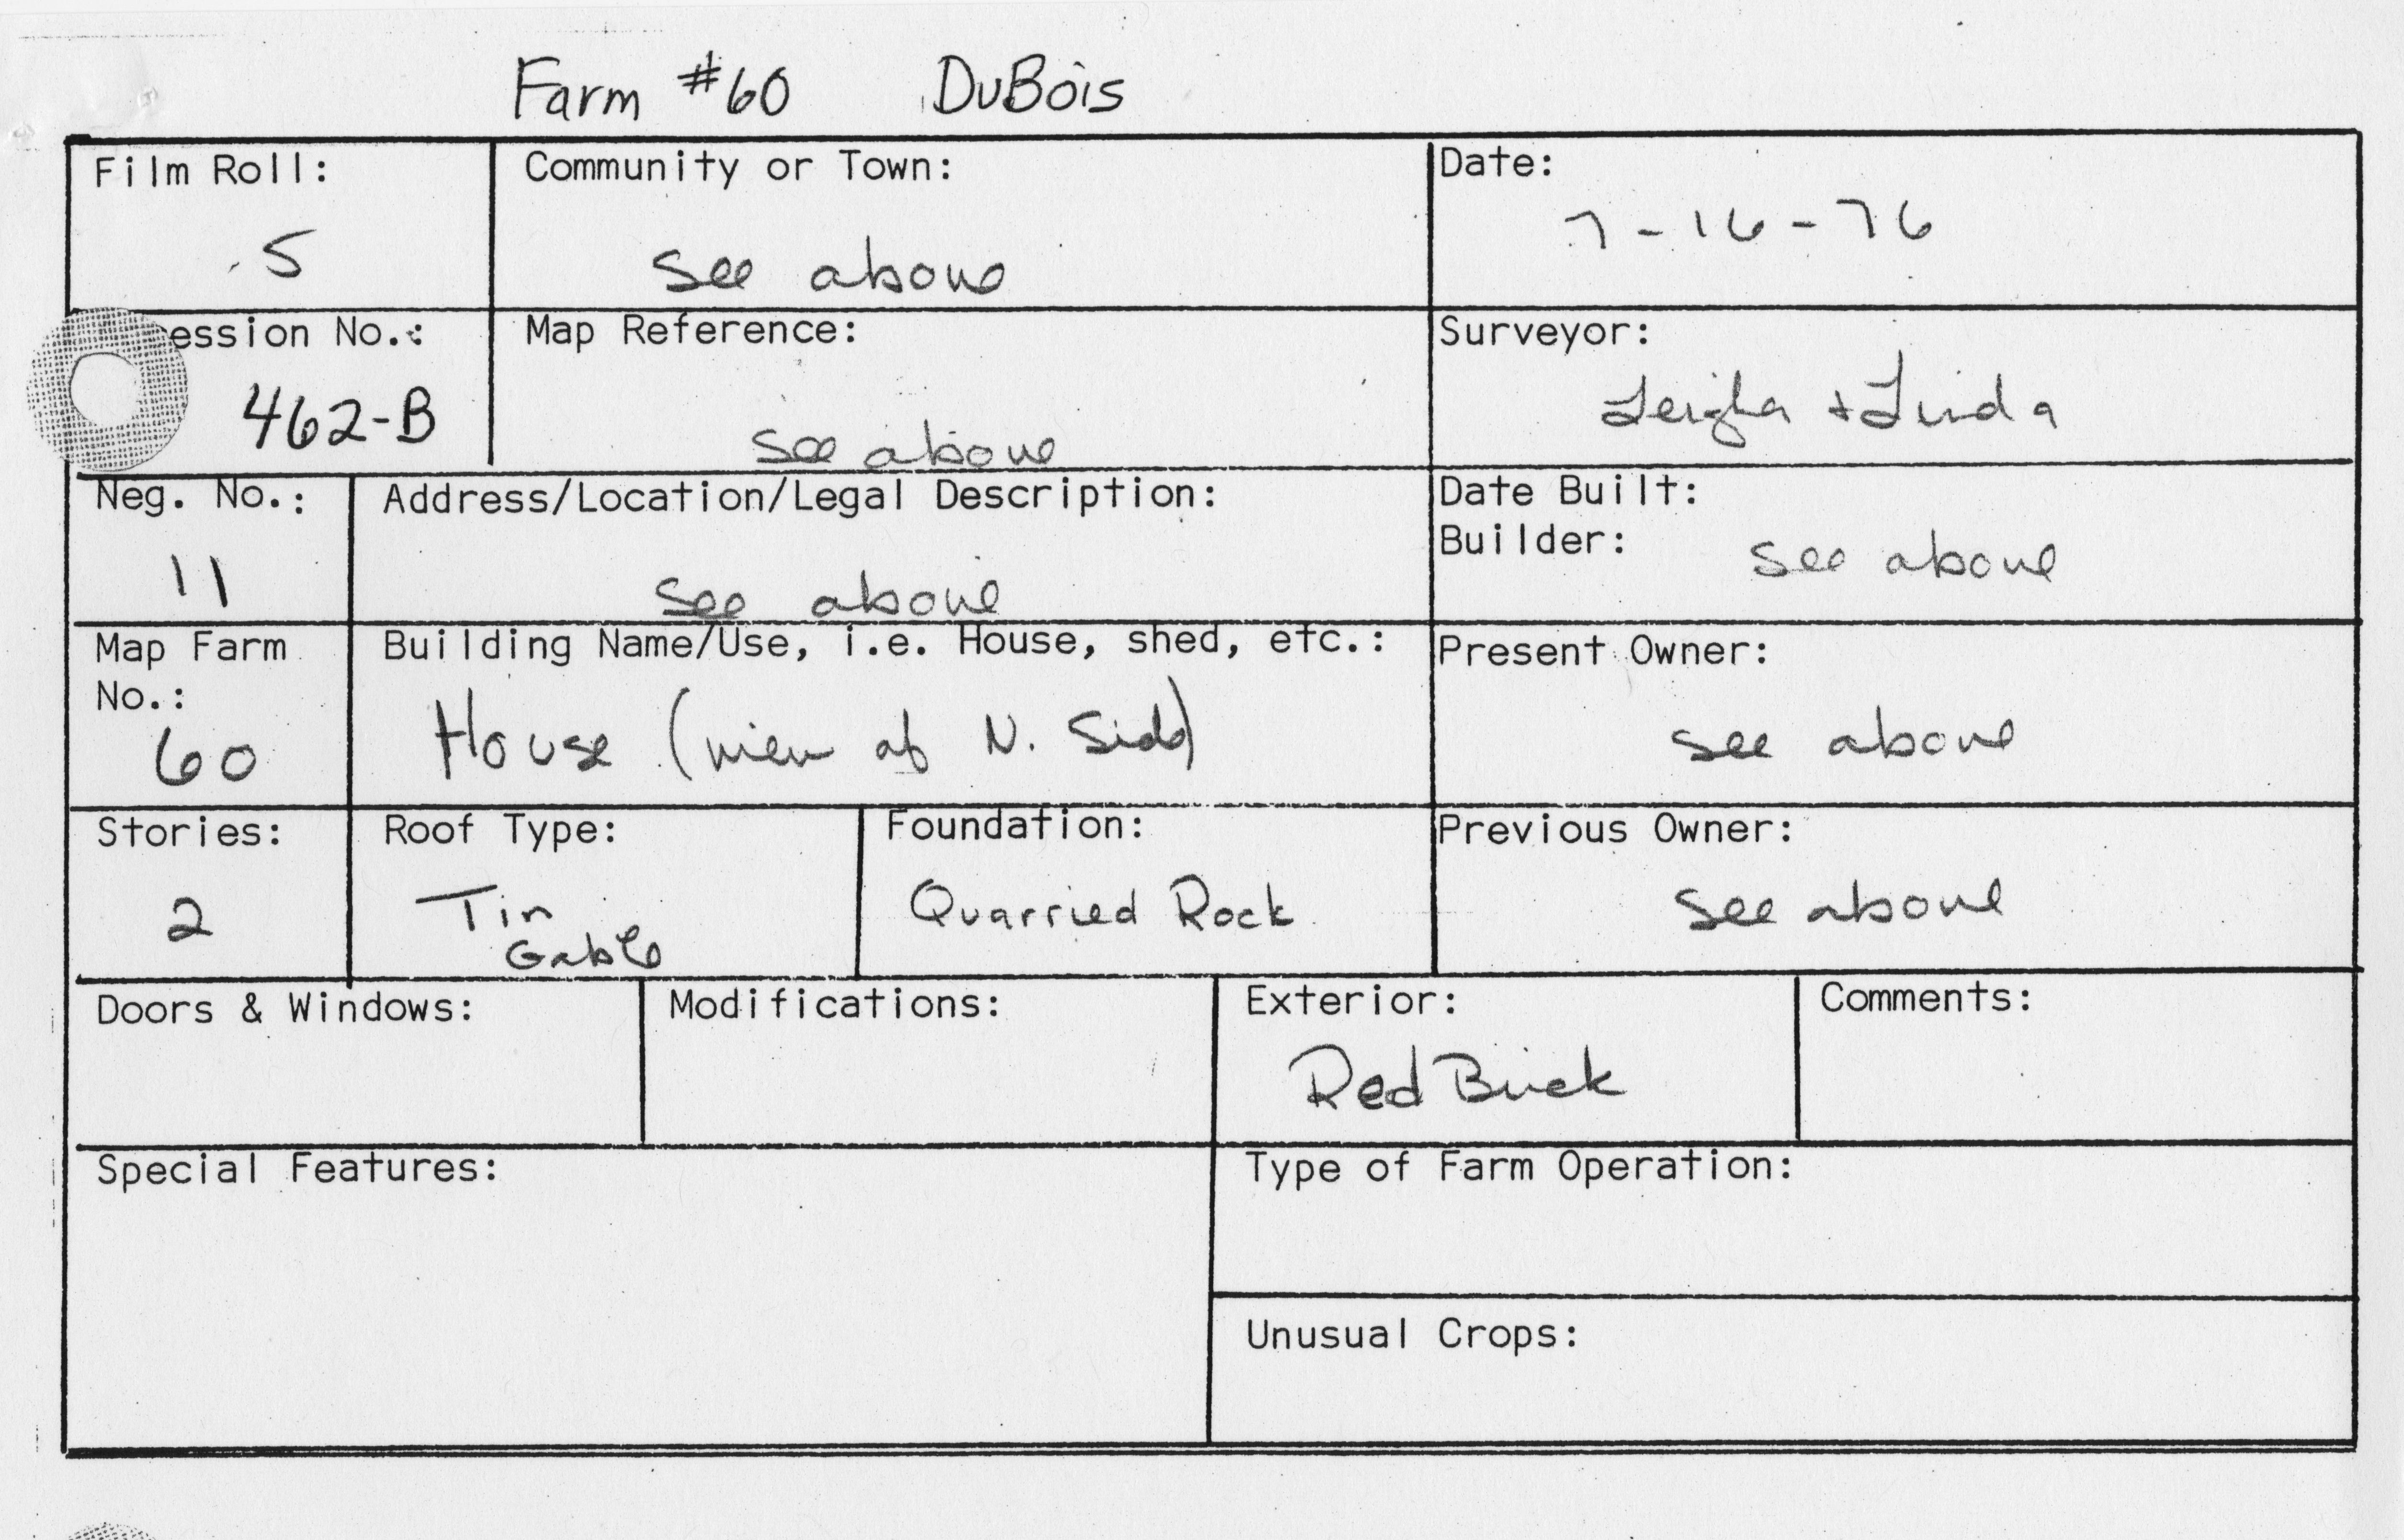 Farm #60 DuBois
Film Roll:
5
Community or Town:
see above
Date:
7-16-76
ession No.:
462-B
Map Reference:
see above
Surveyor:
Leigha + Linda
Neg. No.:
11
Address/Location/Legal Description:
see above
Date Built:
Builder:
see above
Map Farm
No.:
60
Building Name/Use, i.e. House, shed, etc.:
House (view of N. Side)
Present Owner:
see above
Stories:
2
Roof Type:
Tin
Gable
Foundation:
Quarried Rock
Previous Owner:
see above
Doors & Windows:
Modifications:
Exterior:
Red Brick
Comments:
Special Features:
Type of Farm Operation:
Unusual Crops: